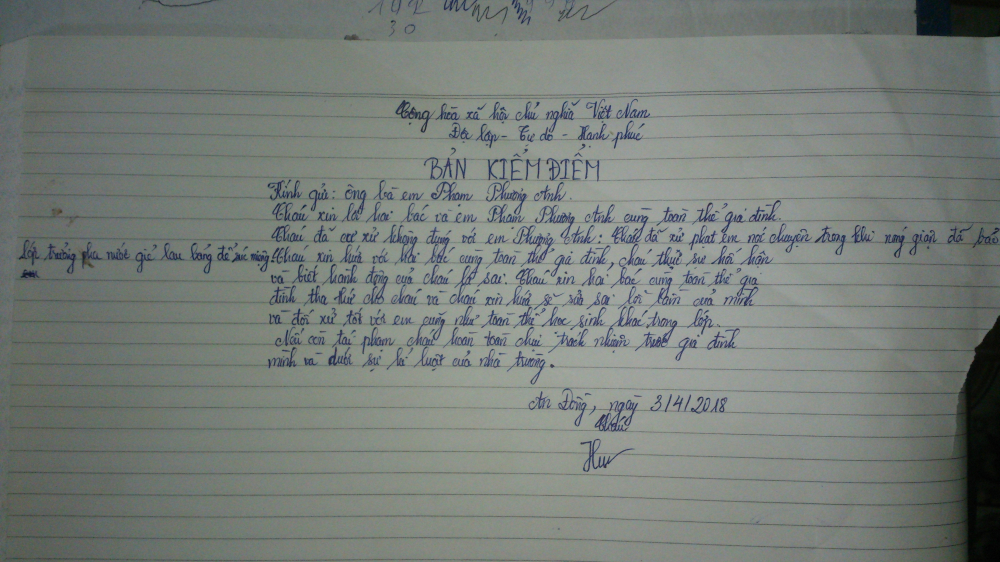 192
30
Cộng hòa xã hội chủ nghĩa Việt Nam
Độc lập - Tự do - Hạnh phúc
BẢN KIỂM ĐIỂM
Kính gửi: ông bà em Phạm Phương Anh.
Cháu xin lỗi hai bác và em Phạm Phương Anh cùng toàn thể gia đình.
Cháu đã cư xử không đúng với em Phương Anh: Cháu đã xử phạt em nói chuyện trong khi nóng giận đã bảo
lớp trưởng pha nước giẻ lau bảng để súc miệng.
Cháu xin hứa với hai bác cùng toàn thể gia đình, cháu thực sự hối hận
và biết hành động của cháu là sai. Cháu xin hai bác cùng toàn thể gia
đình tha thứ cho cháu và cháu xin hứa sẽ sửa sai lỗi lầm của mình
và đối xử tốt với em cũng như toàn thể học sinh khác trong lớp.
Nếu còn tái phạm cháu hoàn toàn chịu trách nhiệm trước gia đình
mình và dưới sự kỉ luật của nhà trường.
An Đồng, ngày 3/4/2018
Cháu